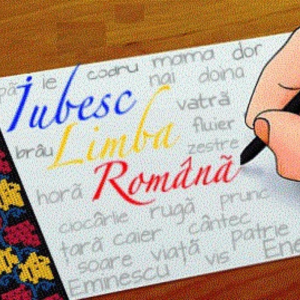 ie codru mama dor
nai doina
Iubesc
vatră
brâu Limba fluier
zestre
Română
horă
ciocârlie rugă prunc
țară caier cântec
soare viață Patrie
Eminescu vis